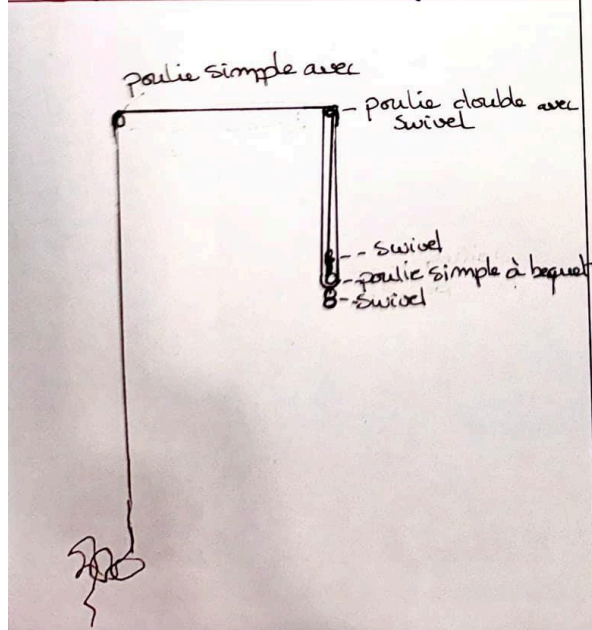 poulie simple avec
- poulie double avec
swivel
-- swivel
-- poulie simple à bequet
-- swivel